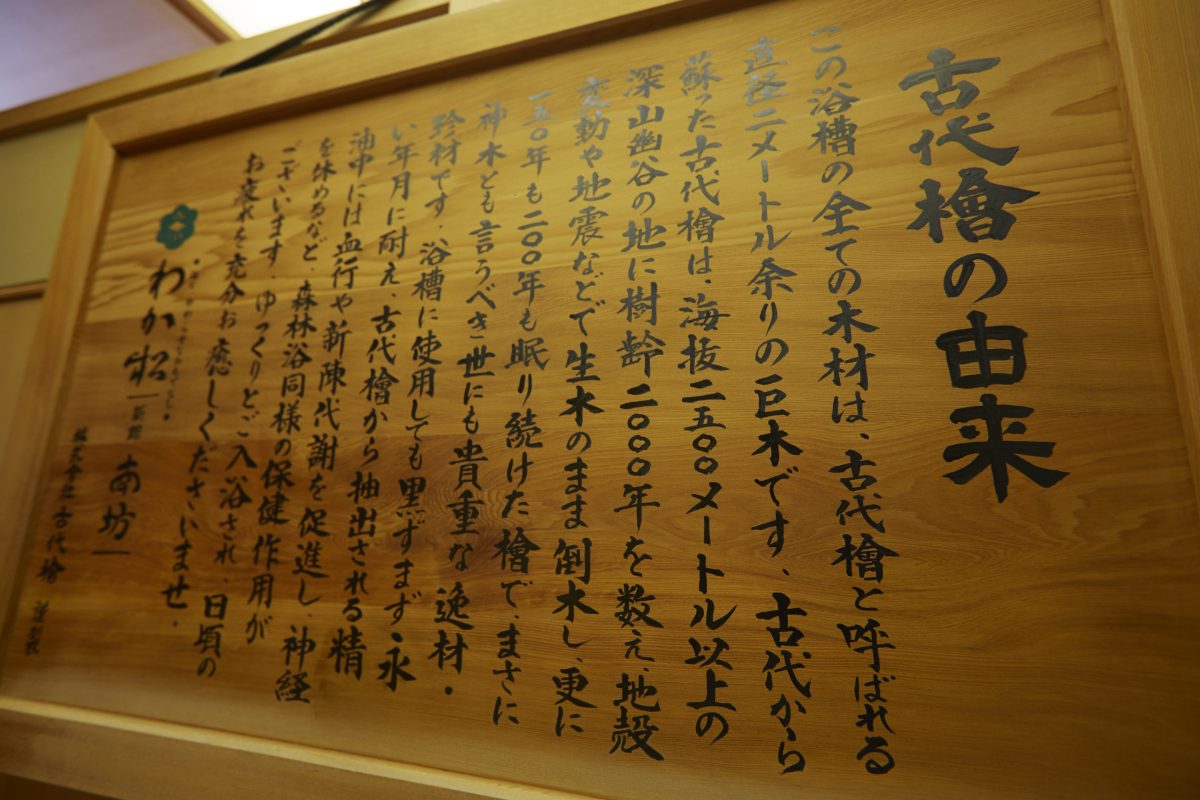 古代檜の由来
この浴槽の全ての木材は、古代檜と呼ばれる
直径二メートル余りの巨木です。古代から
蘇った古代檜は、海抜二五〇〇メートル以上の
深山幽谷の地に樹齢二〇〇〇年を数え、地殻
変動や地震などで生木のまま倒木し、更に
一五〇年も二〇〇年も眠り続けた檜で、まさに
神木とも言うべき世にも貴重な逸材・
珍材です。浴槽に使用しても黒ずまず永
い年月に耐え、古代檜から抽出される精
油中には血行や新陳代謝を促進し、神経
を休めるなど、森林浴同様の保健作用が
ございます。ゆっくりとご入浴され、日頃の
お疲れを充分お癒しくださいませ。
わか松
新館
あ坊
株式会社古代檜 謹製